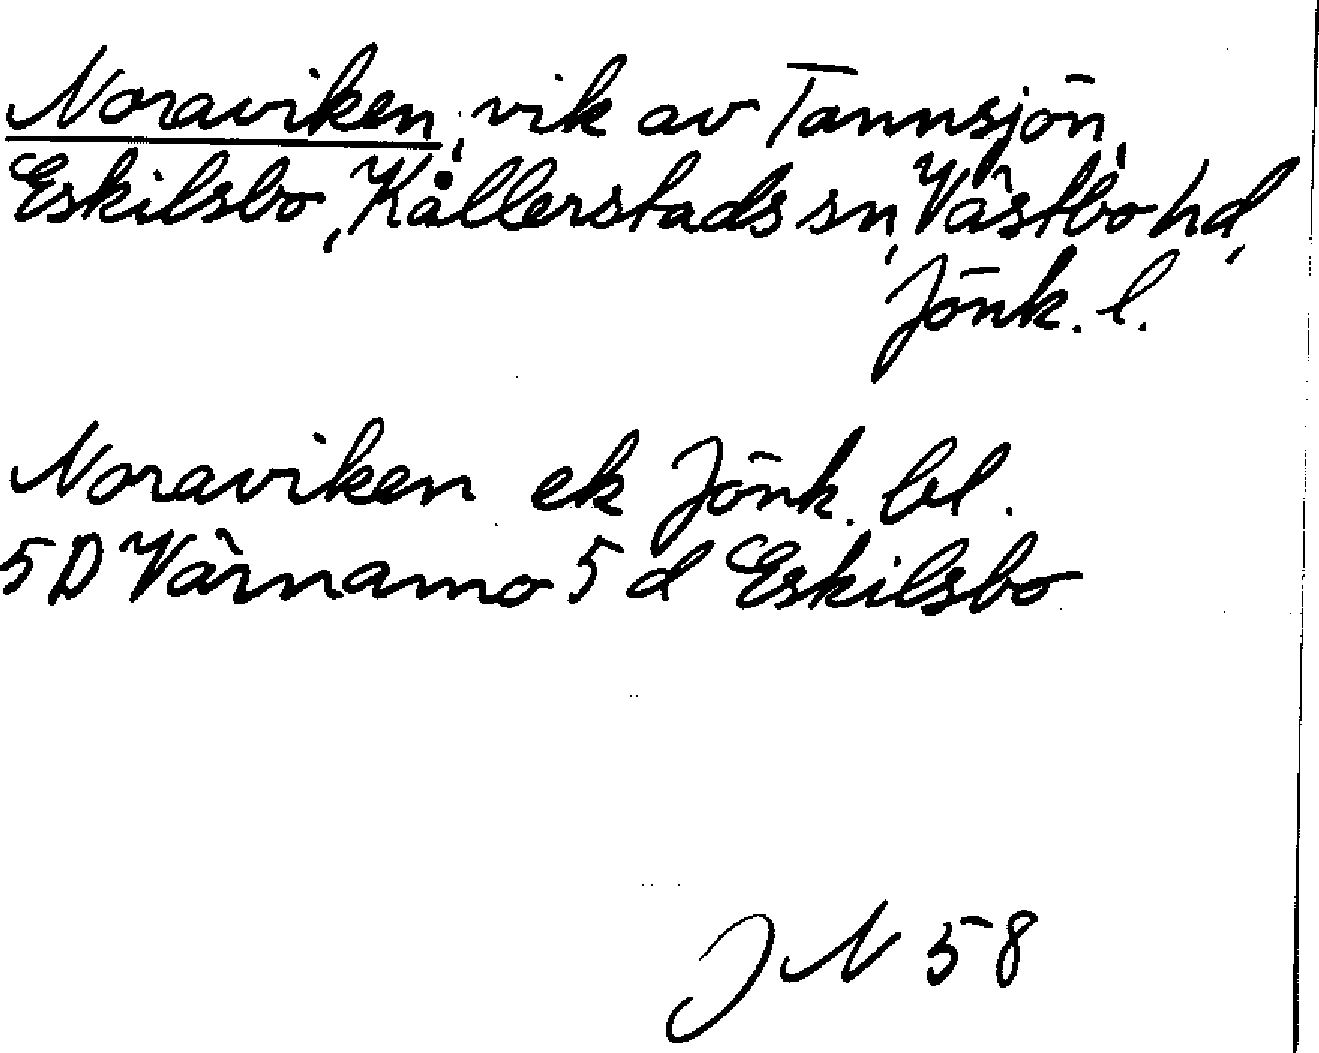 Noraviken, vik av Tannsjön,
Eskilsbo, Kållerstads sn, Västbo hd,
Jönk. l.
Noraviken ek Jönk. bl.
5D Värnamo 5 d Eskilsbo
JN 58